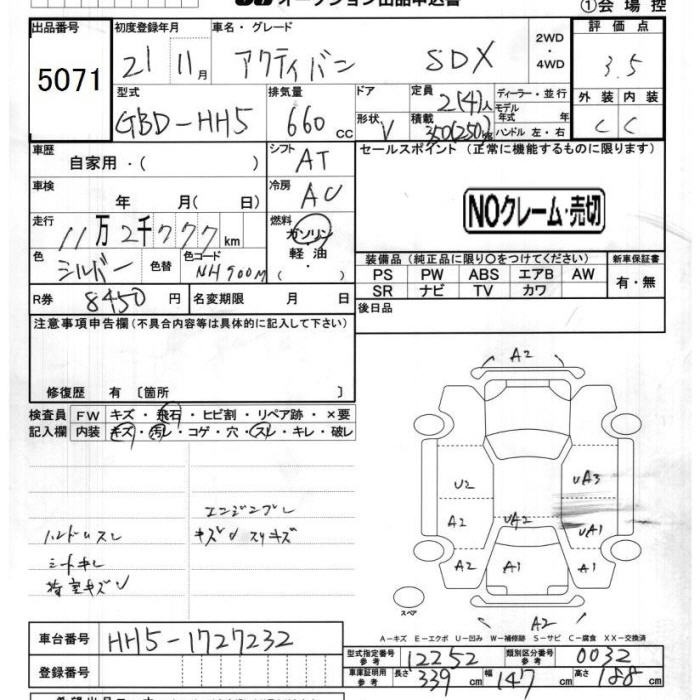 オークション出品申込書
①会場控
出品番号 初度登録年月 車名・グレード 2WD・4WD 評価点
5071 21 11月 アクティバン SDX 3.5
型式 排気量 ドア 定員 ディーラー・並行 外装 内装
GBD-HH5 660cc 2(4)人 モデル年式 年式 C C
形状 V 積載 350(250)kg ハンドル 左・右
車歴 シフト セールスポイント (正常に機能するものに限ります)
自家用・( ) AT
車検 年 月( 日) 冷房 AC
NOクレーム・売切
走行 11万2千777km 燃料 ガソリン・軽油
色 シルバー 色替 色コード NH900M
装備品 (純正品に限り○をつけてください) 新車保証書
PS PW ABS エアB AW 有・無
SR ナビ TV カワ
R券 8450円 名変期限 月 日 後日品
注意事項申告欄(不具合内容等は具体的に記入して下さい)
修復歴 有 〔箇所 〕
検査員 FW キズ・飛石・ヒビ割・リペア跡・×要
記入欄 内装 キズ・汚レ・コゲ・穴・スレ・キレ・破レ
エンジンブレ
ハンドルスレ キズU スリキズ
シートキレ
荷室キズU
A2
U2 UA3
A2 UA2 UA1
A2 A1 A1
スペア A2
A-キズ E-エクボ U-凹み W-補修跡 S-サビ C-腐食 XX-交換済
車台番号 HH5-1727232
型式指定番号 参考 12252 類別区分番号 参考 0032
登録番号 車庫証明用 参考 長さ 339cm 幅 147cm 高さ 188cm